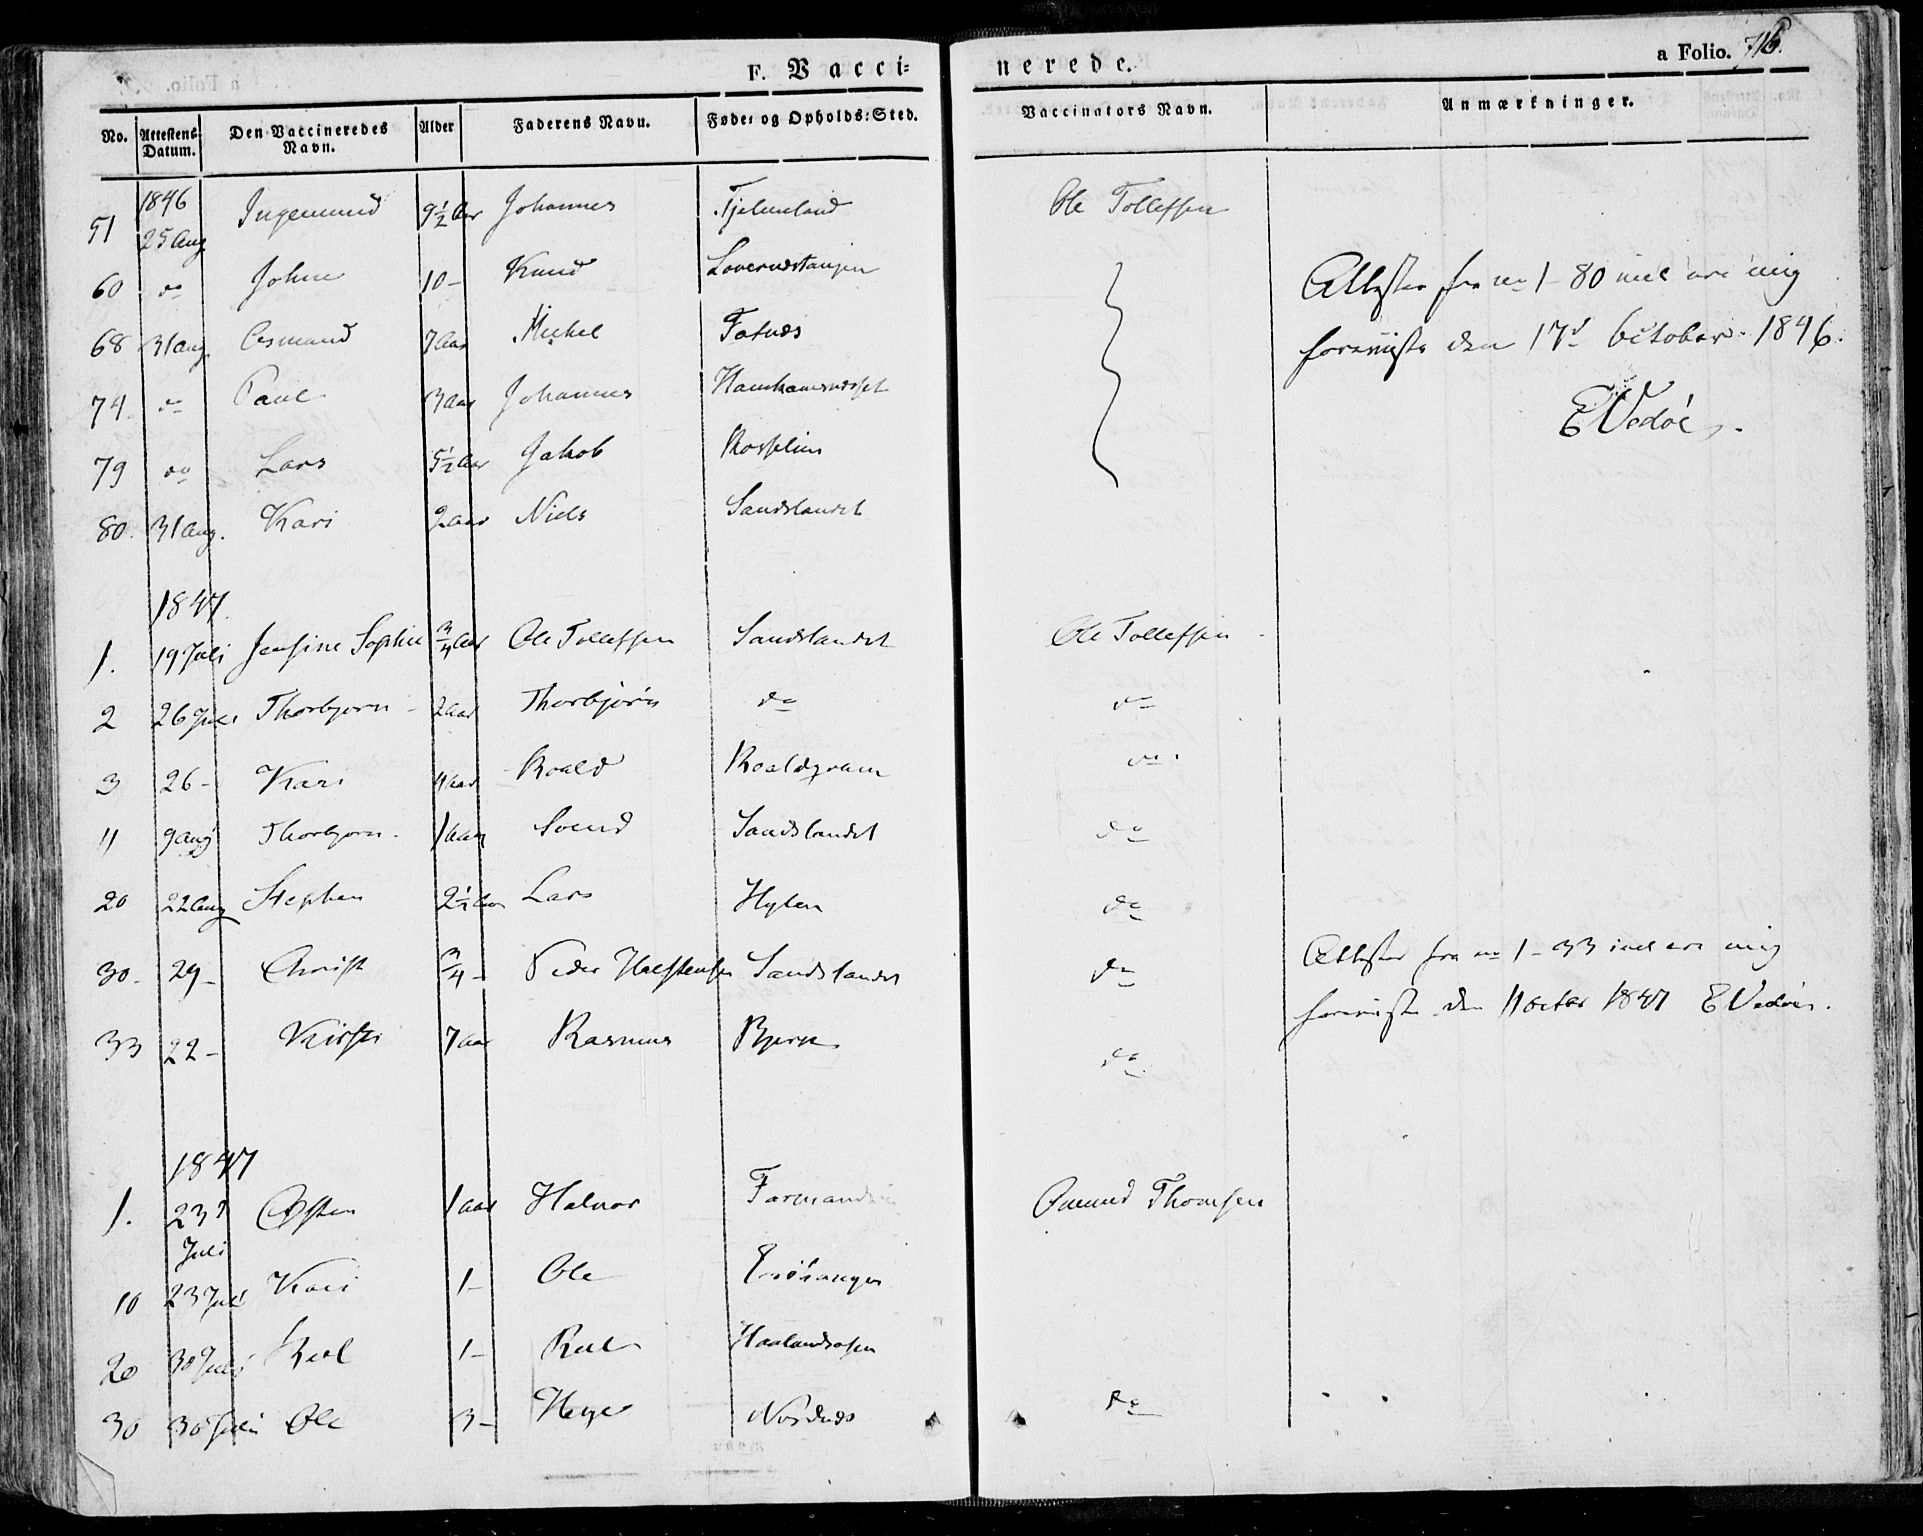 F. Vacci=nerede. a Folio. 716.
No. Attestens Datum. Den Vaccineredes Navn. Alder Faderens Navn. Føde= og Opholds=Sted. Vaccinators Navn. Anmærkninger.
1846
51 25 Aug Ingemund 9½ Aar Johannes Tjelmeland Ole Tollefsen
60 do John 10- Knud
68 31 Aug Asmund 7 Aar Mickel Fatnæs
74. do Paul 3 aar Johannes
79 do Lars 5½ Aar Jakob
80. 31 Aug. Kari 2 aar Niels Sandslandet
Attester fra no 1-80 incl ere mig
foreviiste den 17d October 1846.
E Vedøe.
1847.
1. 19 Juli Jensine Sophie ¾ Aar Ole Tollefsen Sandslandet Ole Tollefsen
2 26 Juli Thorbjørn 2 aar Thorbjørn do do
3 26- Kari 4 aar Roald Roaldqvam do
11 9 Aug Thorbjørn 1 aar Svend Sandslandet do
20 22 Aug Stephen 2½ Aar Lars Hylen do
30. 29- Christ ¾- Peder Halstensen Sandslandet do
33 22- Kirsti 7 aar Rasmus Bjerge do
Attester fra no 1-33 incl ere mig
foreviiste den 11 octbr 1847 E Vedøe.
1847
1. 23d Juli Østen 1 aar Halvor Omund Thomsen
10 23 Juli Kari 1- Ole
20 30 Juli 1- Haalandsosen
30 30 Juli Ole 3- Helge Nordnæs do